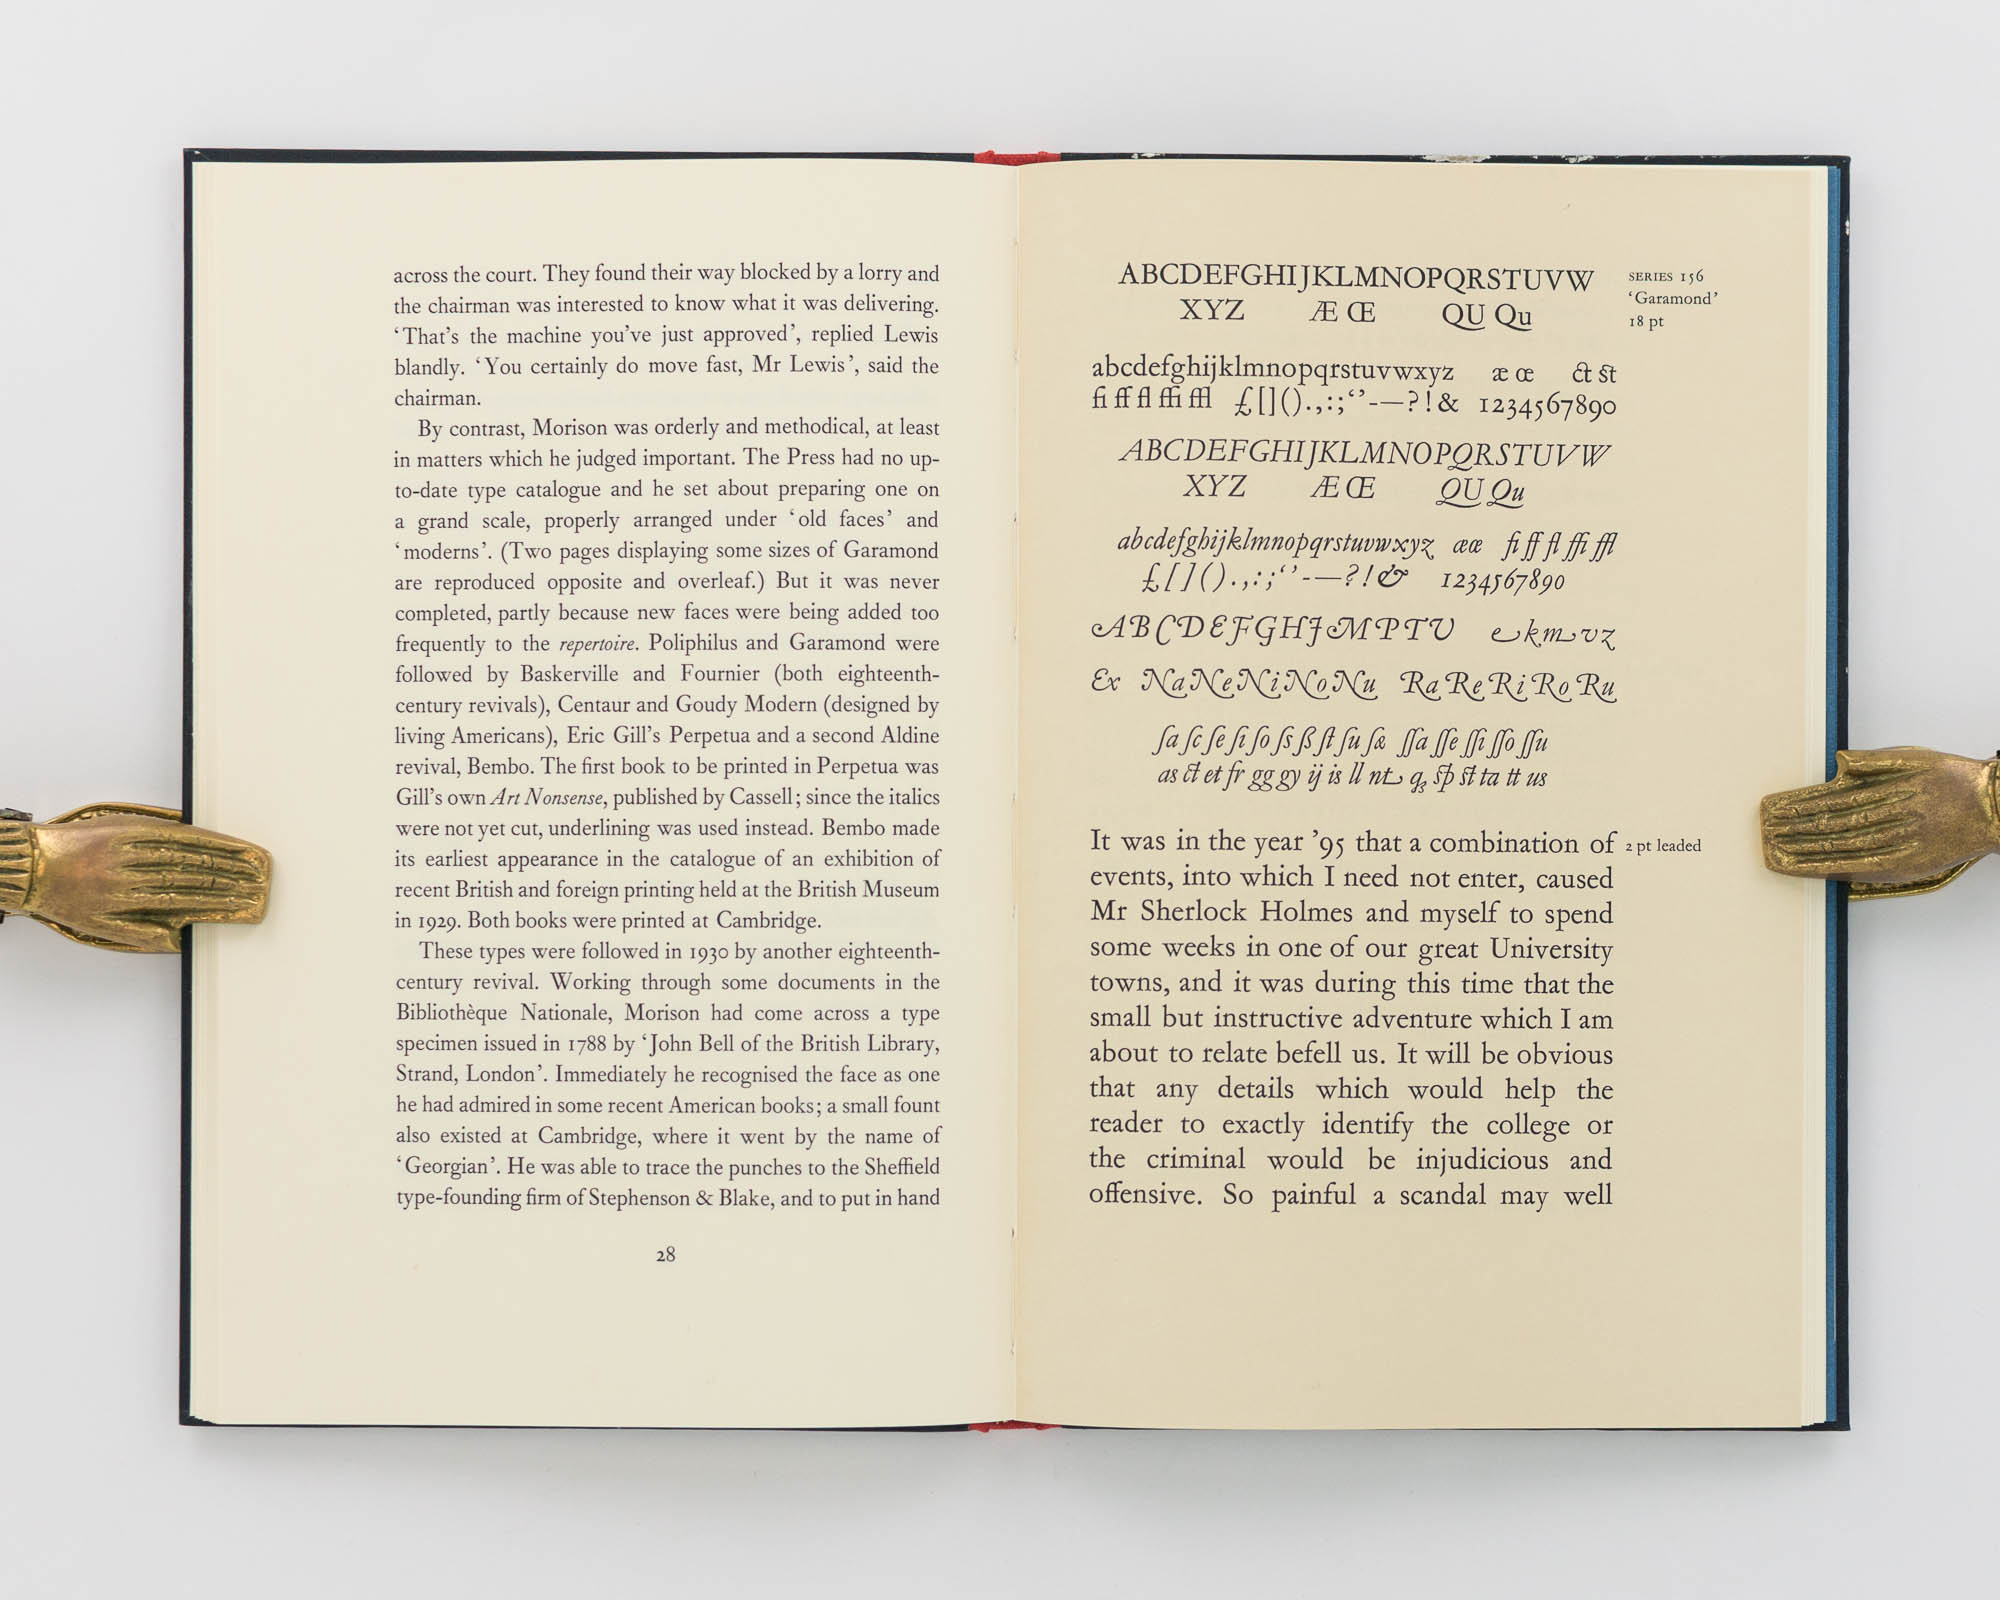 across the court. They found their way blocked by a lorry and
the chairman was interested to know what it was delivering.
‘That’s the machine you’ve just approved’, replied Lewis
blandly. ‘You certainly do move fast, Mr Lewis’, said the
chairman.
By contrast, Morison was orderly and methodical, at least
in matters which he judged important. The Press had no up-
to-date type catalogue and he set about preparing one on
a grand scale, properly arranged under ‘old faces’ and
‘moderns’. (Two pages displaying some sizes of Garamond
are reproduced opposite and overleaf.) But it was never
completed, partly because new faces were being added too
frequently to the repertoire. Poliphilus and Garamond were
followed by Baskerville and Fournier (both eighteenth-
century revivals), Centaur and Goudy Modern (designed by
living Americans), Eric Gill’s Perpetua and a second Aldine
revival, Bembo. The first book to be printed in Perpetua was
Gill’s own Art Nonsense, published by Cassell; since the italics
were not yet cut, underlining was used instead. Bembo made
its earliest appearance in the catalogue of an exhibition of
recent British and foreign printing held at the British Museum
in 1929. Both books were printed at Cambridge.
These types were followed in 1930 by another eighteenth-
century revival. Working through some documents in the
Bibliothèque Nationale, Morison had come across a type
specimen issued in 1788 by ‘John Bell of the British Library,
Strand, London’. Immediately he recognised the face as one
he had admired in some recent American books; a small fount
also existed at Cambridge, where it went by the name of
‘Georgian’. He was able to trace the punches to the Sheffield
type-founding firm of Stephenson & Blake, and to put in hand
28
ABCDEFGHIJKLMNOPQRSTUVW
XYZ Æ Œ QU Qu
SERIES 156
‘Garamond’
18 pt
abcdefghijklmnopqrstuvwxyz æ œ ct st
fi ff fl ffi ffl £[]().,:;‘’-—?!& 1234567890
ABCDEFGHIJKLMNOPQRSTUVW
XYZ Æ Œ QU Qu
abcdefghijklmnopqrstuvwxyz æœ fi ff fl ffi ffl
£[]().,:;‘’-—?!& 1234567890
ABCDEFGHJMPTU e k m v z
Ex Na Ne Ni No Nu Ra Re Ri Ro Ru
ſa ſc ſe ſi ſo ſs ß ſt ſu ſæ ſſa ſſe ſſi ſſo ſſu
as ct et fr gg gy ij is ll nt st ta tt us
It was in the year ’95 that a combination of
2 pt leaded
events, into which I need not enter, caused
Mr Sherlock Holmes and myself to spend
some weeks in one of our great University
towns, and it was during this time that the
small but instructive adventure which I am
about to relate befell us. It will be obvious
that any details which would help the
reader to exactly identify the college or
the criminal would be injudicious and
offensive. So painful a scandal may well